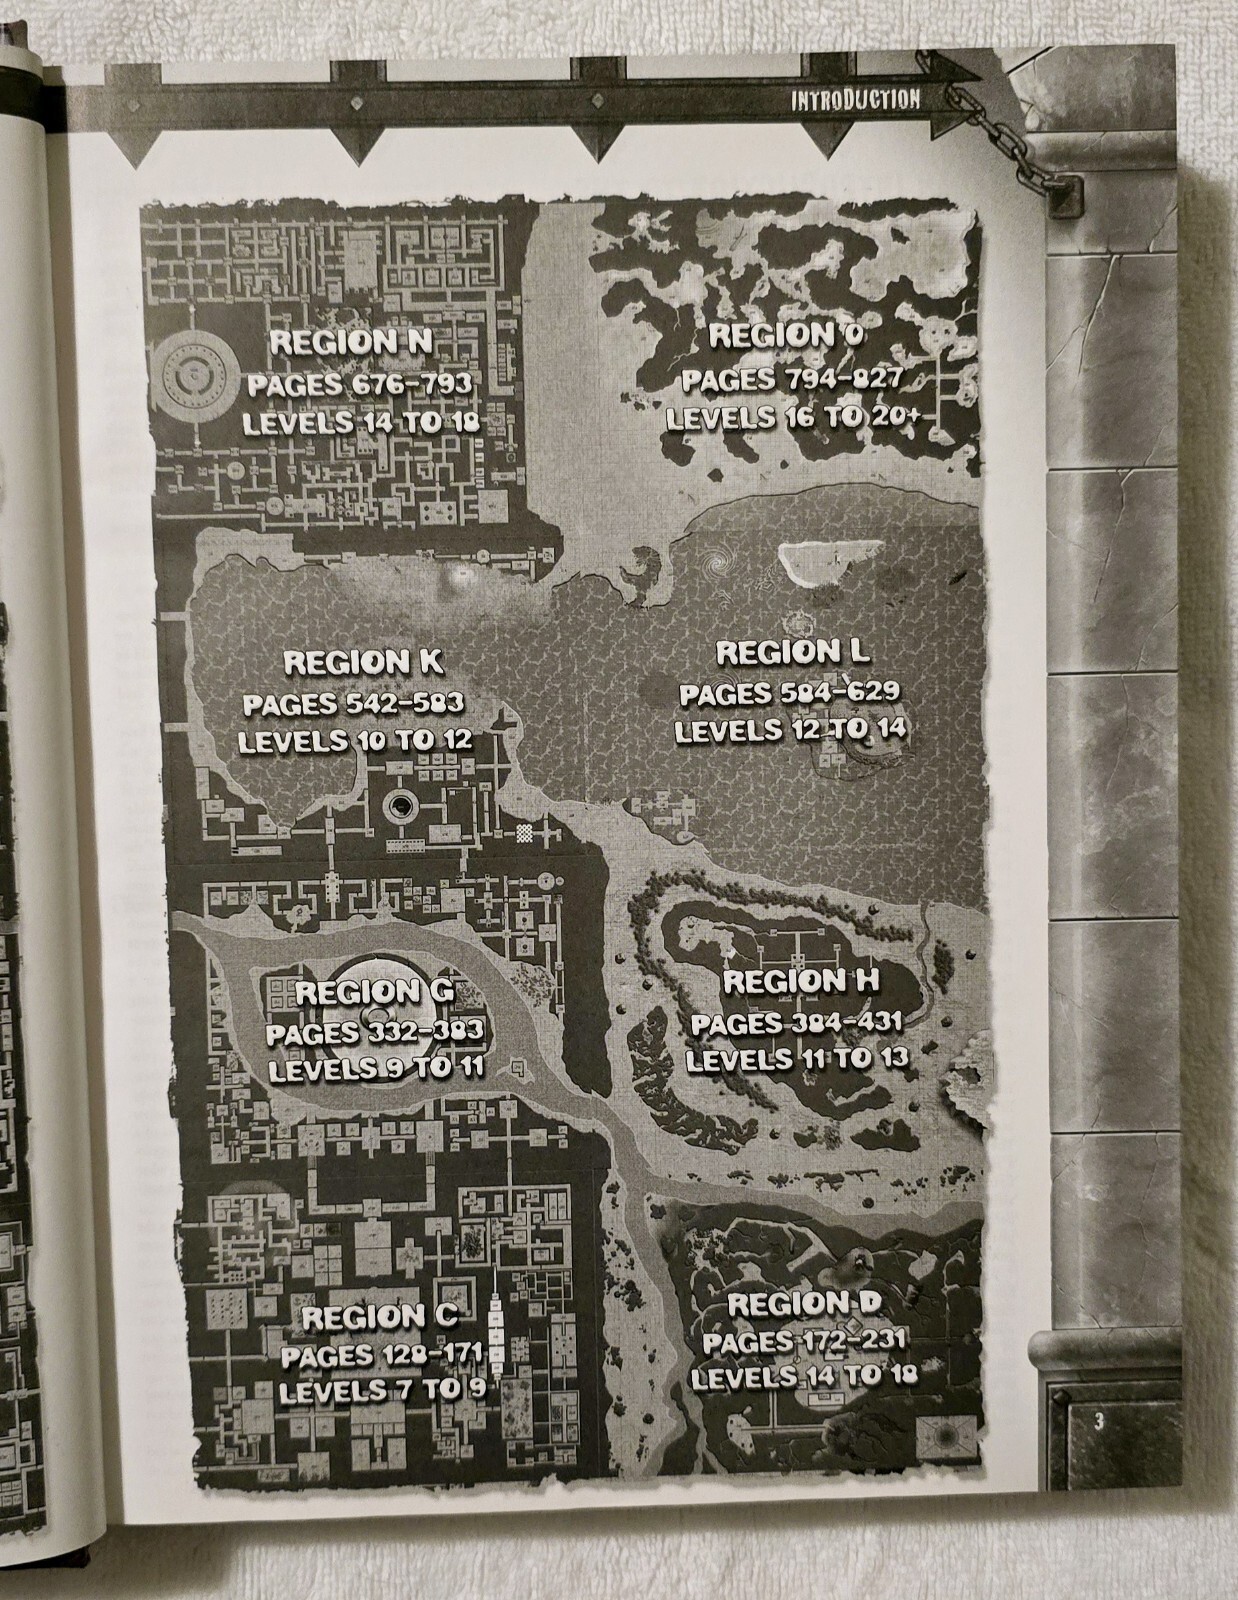 INTRODUCTION
REGION N
PAGES 676-793
LEVELS 14 TO 18
REGION O
PAGES 794-827
LEVELS 16 TO 20+
REGION K
PAGES 542-583
LEVELS 10 TO 12
REGION L
PAGES 584-629
LEVELS 12 TO 14
REGION G
PAGES 332-383
LEVELS 9 TO 11
REGION H
PAGES 384-431
LEVELS 11 TO 13
REGION C
PAGES 128-171
LEVELS 7 TO 9
REGION D
PAGES 172-231
LEVELS 14 TO 18
3